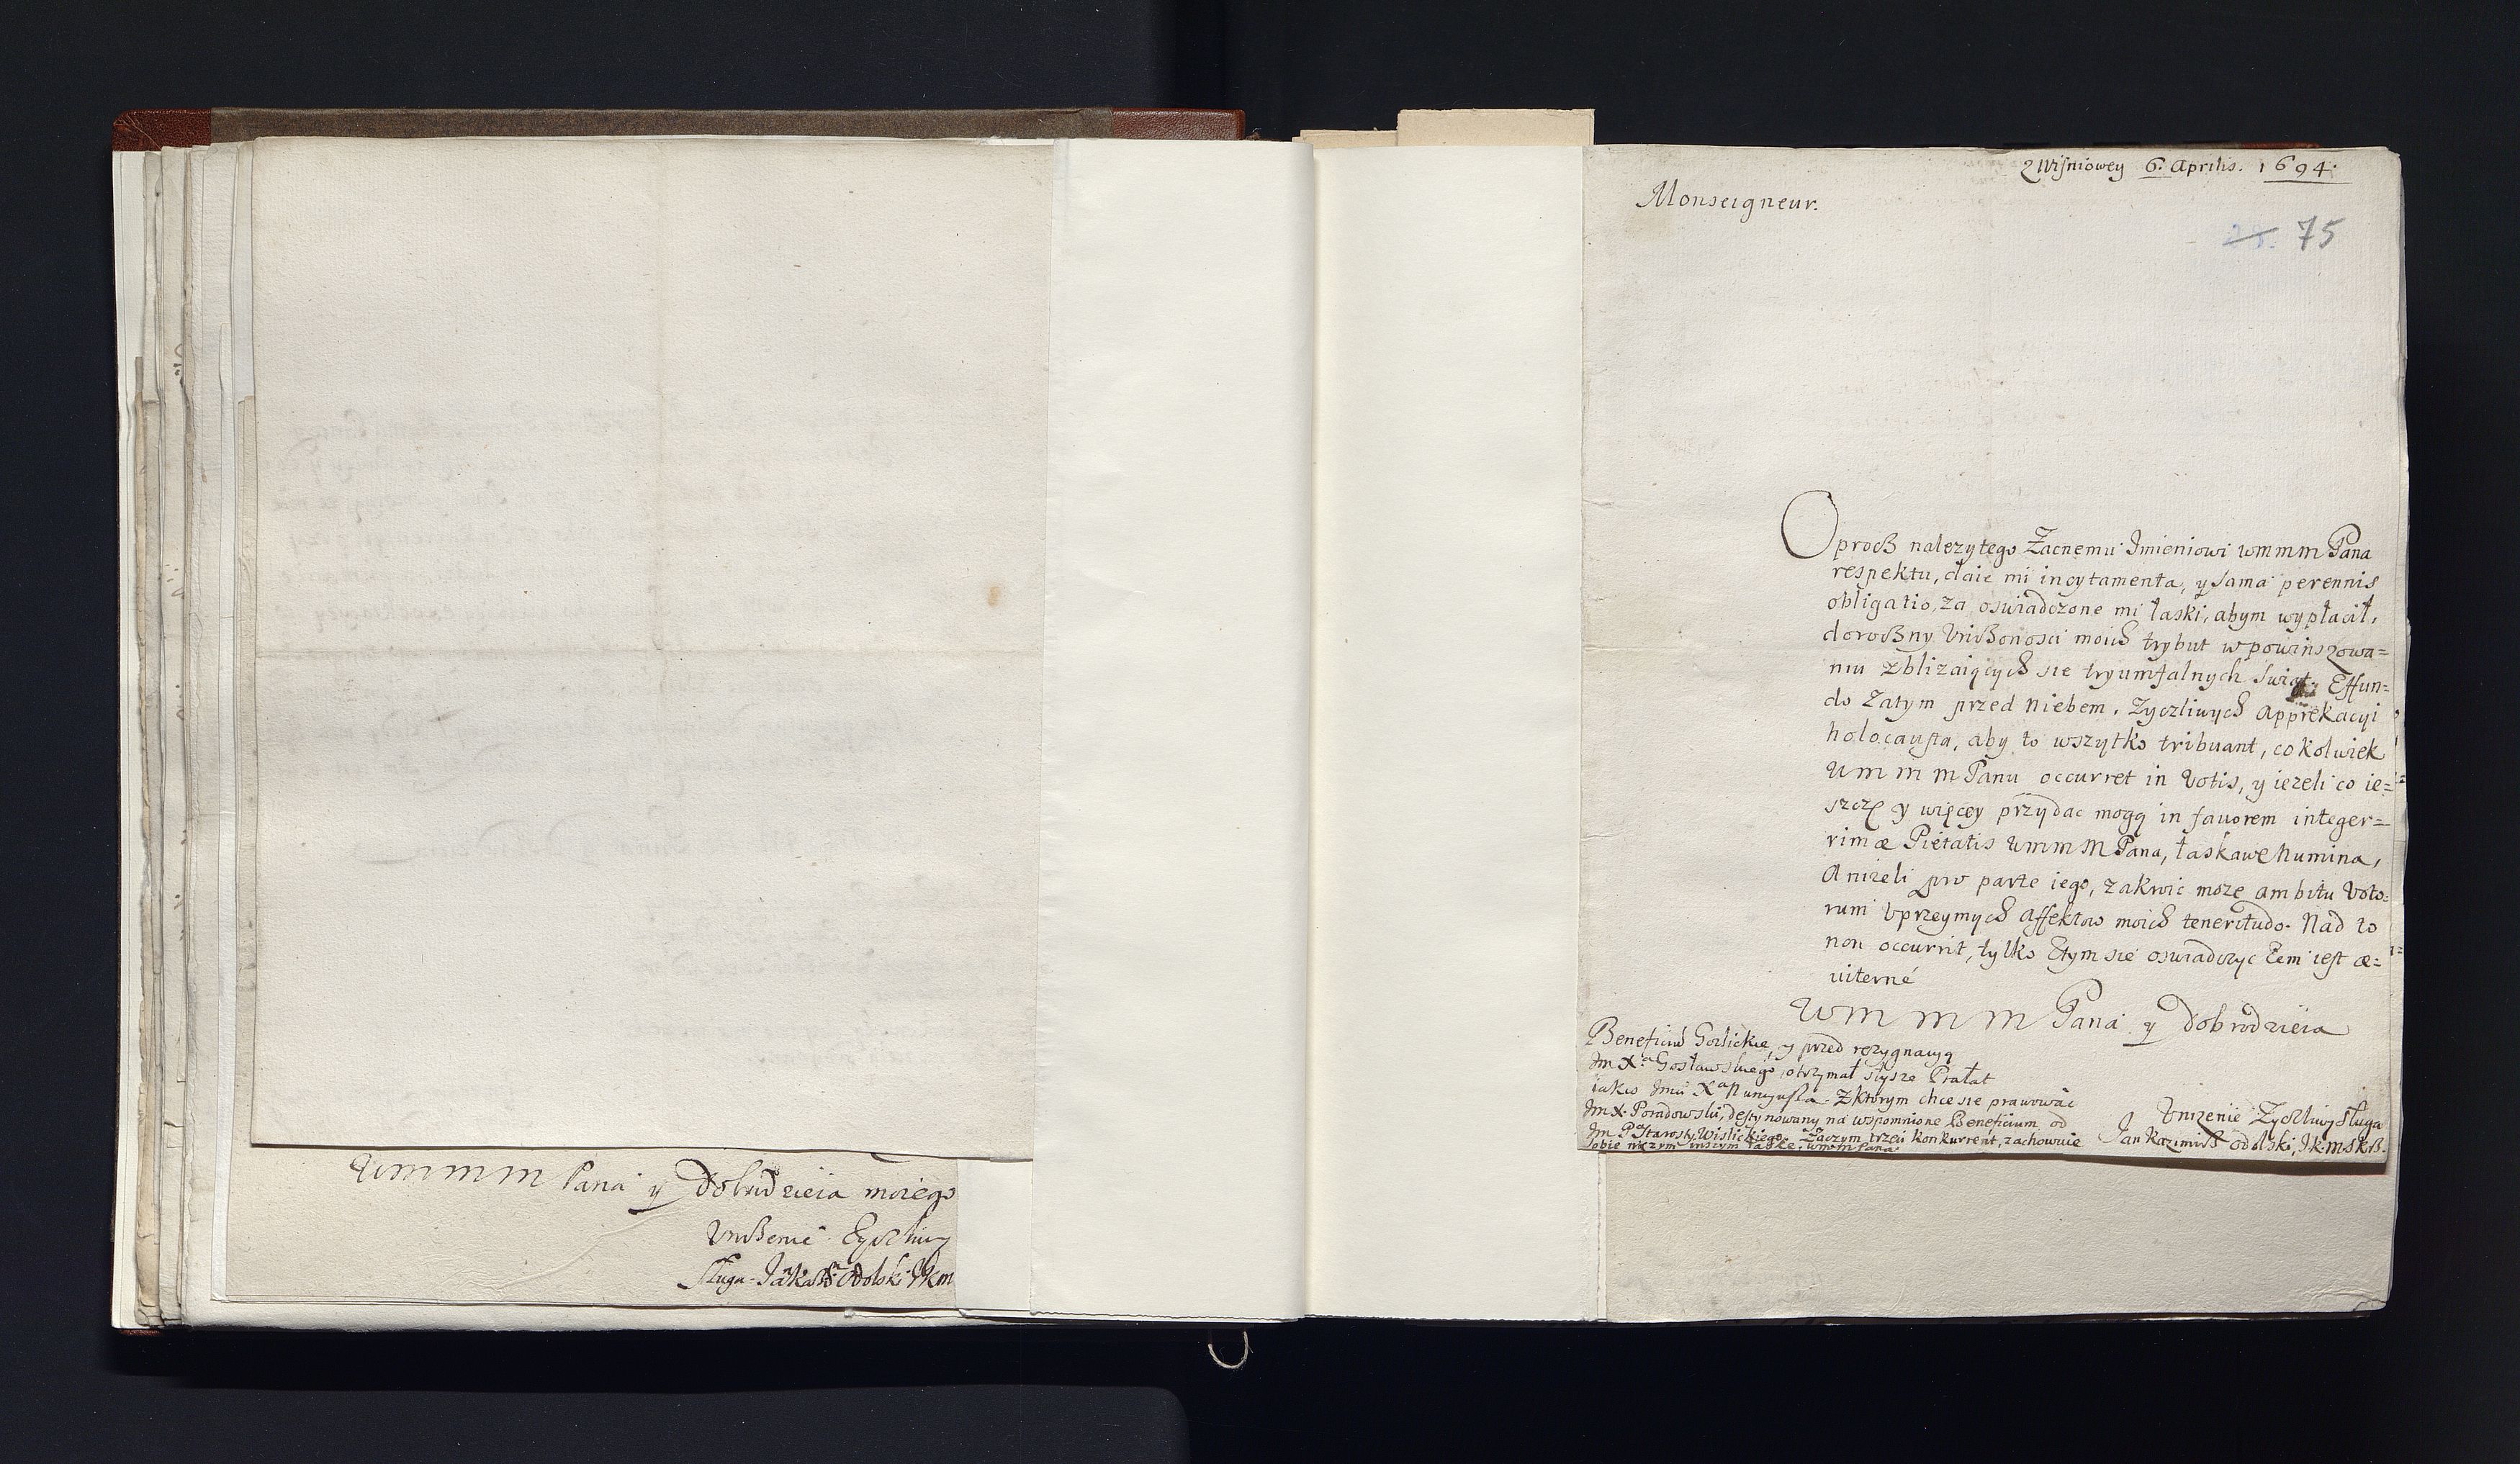 WMMM Pana y Dobrodzieia moiego
Vniżenie Życzliwy
Sługa
Z Wiśniowey 6. Aprilis. 1694.
Monseigneur.
75
Oproß należytego Zacnemu Imieniowi WMMM Pana
respektu, daie mi incytamenta, y sama perennis
obligatio, za oswiadczone mi łaski, abym wypłacił,
doroßny Vnißonosci moich trybut w powinszowa=
niu zblizaiących sie tryumfalnych Swiąt. Effun=
do Zatym przed Niebem, Zyczliwych apprekacyi
holocausta, aby to wszytko tribuant, cokolwiek
WMMM Panu occurret in Votis, y iezeli co ie=
szcze y więcey przydac mogą in favorem integer=
rimæ Pietatis WMMM Pana, łaskawe Numina,
Anizeli pro parte iego, zakroic moze ambitu Voto=
rum Vprzeymych Affektow moich teneritudo. Nad to
non occurrit, tylko Ztym sie oswiadczyc Zem iest æ=
uiterné
WMMM Pana y Dobrodzieia
Beneficium Gorlickie, y przed rezygnacyą
Im Xa Gosławskiego, otrzymał słysze Prałat
iakis Imci Xa Nuncyusza. Z ktorym chce sie prawowac
Im X. Poradowski, destynowany na wspomnione Beneficium od
Im Pa Starosty Wislickiego. Zaczym trzeci konkurrent, zachowuie
sobie niczym inszym łaskę WMMM Pana.
Vnizenie Zyczliwy Sługa
Jan Kazimirß Odolski, JKMSkß.